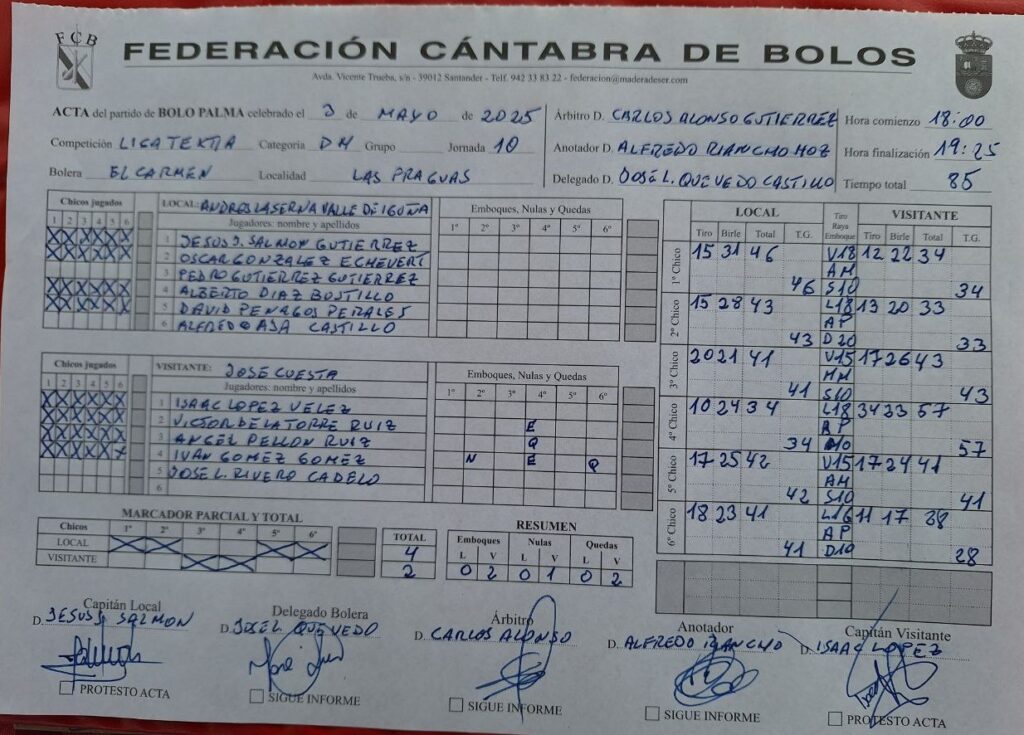 FCB
FEDERACIÓN CÁNTABRA DE BOLOS
Avda. Vicente Trueba, s/n - 39012 Santander - Telf. 942 33 83 22 - federacion@maderadeser.com
ACTA del partido de BOLO PALMA celebrado el 3 de MAYO de 2025
Competición LIGA TEKTIA Categoría DH Grupo Jornada 10
Bolera EL CARMEN Localidad LAS FRAGUAS
Árbitro D. CARLOS ALONSO GUTIERREZ
Anotador D. ALFREDO RIANCHO HOZ
Delegado D. JOSE L. QUEVEDO CASTILLO
Hora comienzo 18:00
Hora finalización 19:25
Tiempo total 85
Chicos jugados
1 2 3 4 5 6
LOCAL: ANDROS LASERNA VALLE DE IGUÑA
Jugadores: nombre y apellidos
1 JESUS J. SALMON GUTIERREZ
2 OSCAR GONZALEZ ECHEVERI
3 PEDRO GUTIERREZ GUTIERREZ
4 ALBERTO DIAZ BUSTILLO
5 DAVID PENAGOS PERALES
6 ALFREDO ASA CASTILLO
Emboques, Nulas y Quedas
1º 2º 3º 4º 5º 6º
Chicos jugados
1 2 3 4 5 6
VISITANTE: JOSE CUESTA
Jugadores: nombre y apellidos
1 ISAAC LOPEZ VELEZ
2 VICTOR DE LA TORRE RUIZ
3 ANGEL PELLON RUIZ
4 IVAN GOMEZ GOMEZ
5 JOSE L. RIVERO CADELO
6
Emboques, Nulas y Quedas
1º 2º 3º 4º 5º 6º
E
Q
N E Q
LOCAL Tiro Raya Emboque VISITANTE
Tiro Birle Total T.G. Tiro Birle Total T.G.
1º Chico 15 31 46 V18 12 22 34
AM
46 S10 34
2º Chico 15 28 43 L18 13 20 33
AP
43 D20 33
3º Chico 20 21 41 V15 17 26 43
MM
41 S10 43
4º Chico 10 24 34 L18 34 23 57
AP
34 57
5º Chico 17 25 42 V15 17 24 41
AM
42 S10 41
6º Chico 18 23 41 L16 11 17
AP
41 D10 28
MARCADOR PARCIAL Y TOTAL
Chicos 1º 2º 3º 4º 5º 6º TOTAL
LOCAL 4
VISITANTE 2
RESUMEN
Emboques Nulas Quedas
L V L V L V
0 2 0 1 0 2
Capitán Local
D. JESUS J SALMON
PROTESTO ACTA
Delegado Bolera
D. JOSE L QUEVEDO
SIGUE INFORME
Árbitro
D. CARLOS ALONSO
SIGUE INFORME
Anotador
D. ALFREDO RIANCHO
SIGUE INFORME
Capitán Visitante
D. ISAAC LOPEZ
PROTESTO ACTA